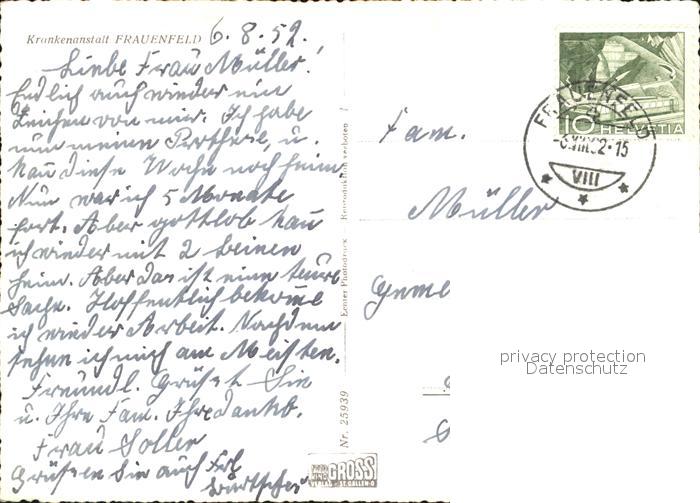 Krankenanstalt FRAUENFELD 6.8.52.
Liebe Frau Müller!
Endlich auch wieder ein
Zeichen von mir. Ich habe
nun meinen Prothese, u.
kann diese Woche noch heim
Nun war ich 5 Monate
fort. Aber gottlob kann
ich wieder mit 2 Beinen
heim. Aber das ist eine teure
Sache. Hoffentlich bekomme
ich wieder Arbeit. Nachdem
sehne ich mich am Meisten.
Freundl. Grüsst Sie
u. Ihre Fam. Ihre dankb.
Frau Soller
Grüssen Sie auch Frl.
Nr. 25939
Echter Photodruck
Reproduktion verboten
GROSS
VERLAG ST. GALLEN
Fam.
Müller
Geme
FRAUENFELD
-6.VIII.52-15
VIII
10 HELVETIA
privacy protection
Datenschutz